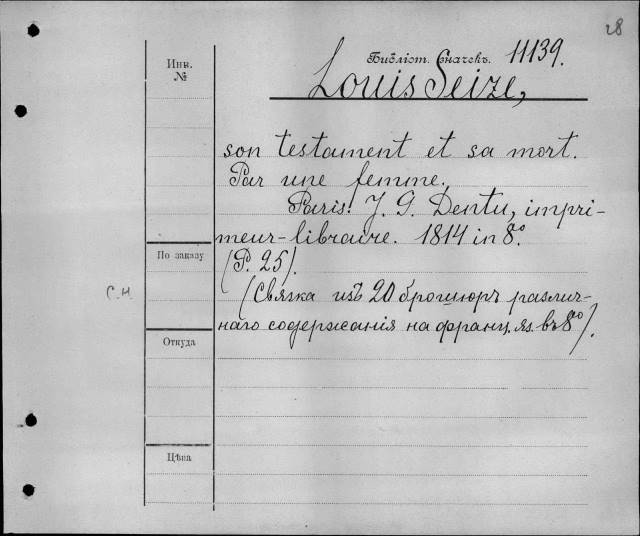 28
Инв.
№
Библіот. значекъ. 11139.
Louis Seize,
son testament et sa mort.
Par une femme.
Paris: J. G. Dentu, impri-
meur-libraire. 1814 in 8º.
По заказу
(P. 25).
С.Н.
(Связка изъ 20 брошюръ различ-
наго содержанія на франц. яз. въ 8º).
Откуда
Цѣна